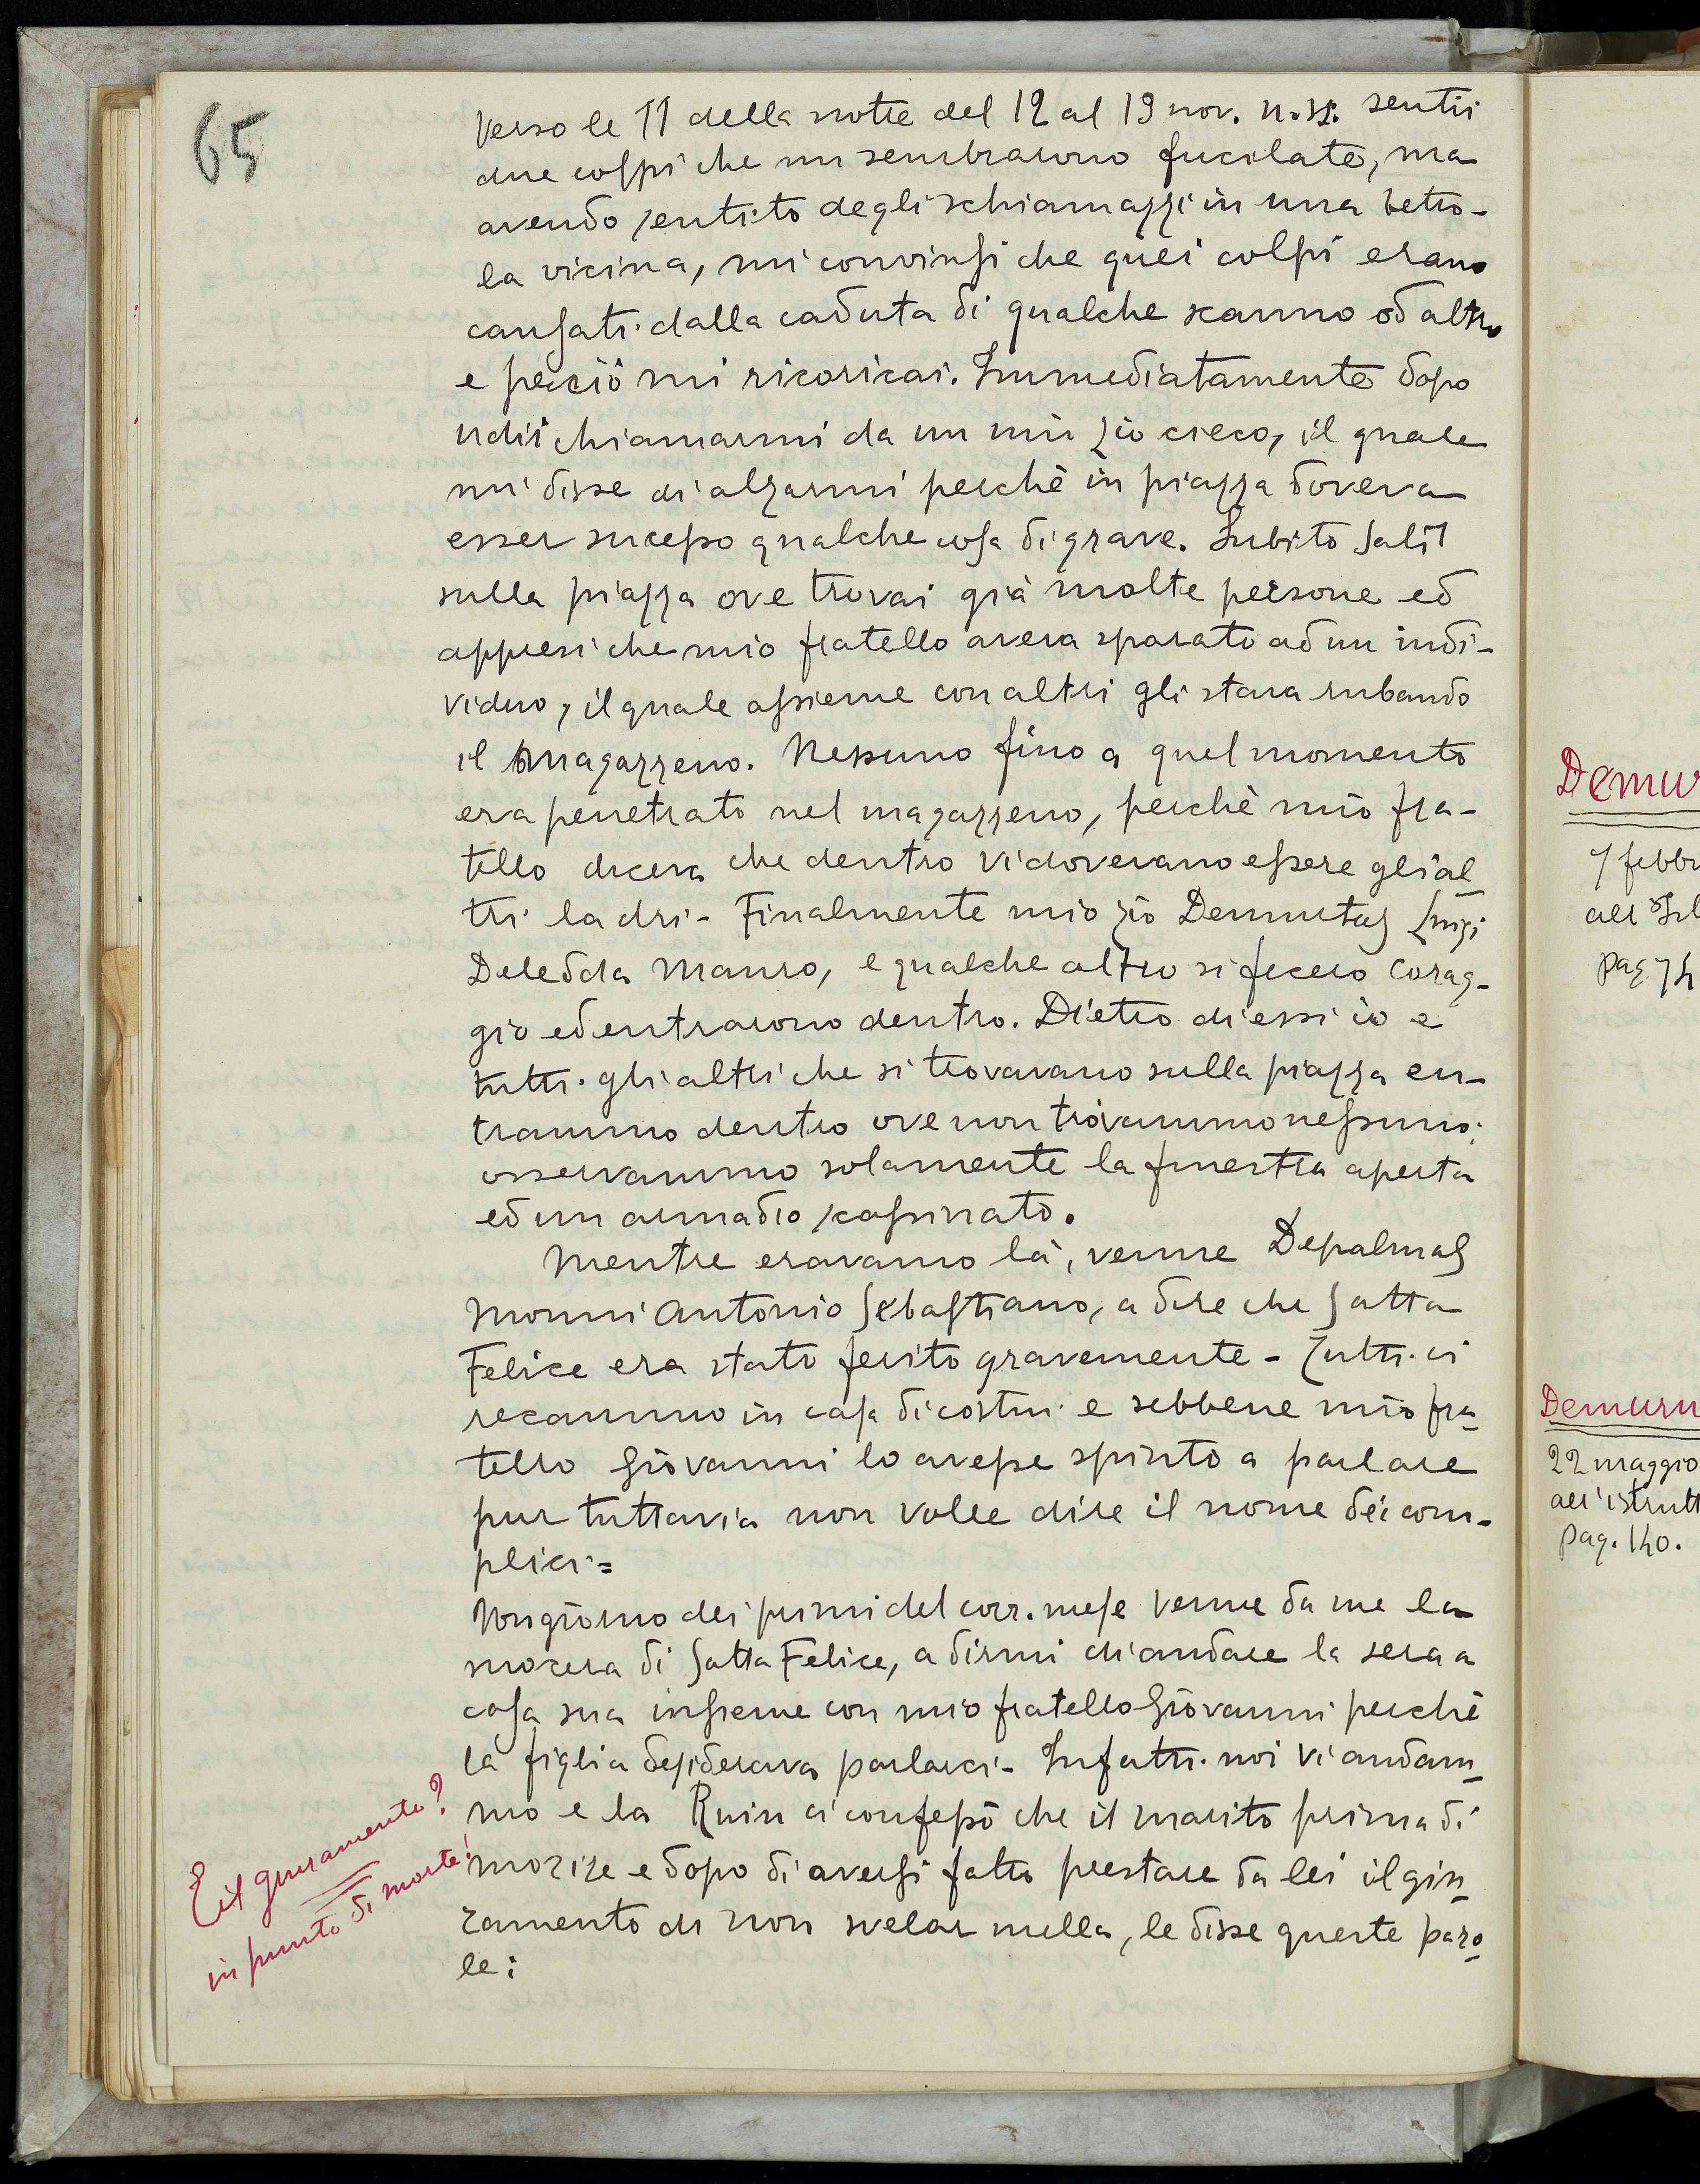 65
Verso le 11 della notte del 12 al 13 nov. u.s. sentii
due colpi che mi sembrarono fucilate, ma
avendo sentito degli schiamazzi in una betto-
la vicina, mi convinsi che quei colpi erano
causati dalla caduta di qualche scanno od altro
e perciò mi ricoricai. Immediatamente dopo
udii chiamarmi da un mio zio cieco, il quale
mi disse di alzarmi perchè in piazza doveva
esser sucesso qualche cosa di grave. Subito salii
sulla piazza ove trovai già molte persone ed
appresi che mio fratello aveva sparato ad un indi-
viduo, il quale assieme con altri gli stava rubando
il magazzeno. Nessuno fino a quel momento
era penetrato nel magazzeno, perchè mio fra-
tello diceva che dentro vi dovevano essere gli al
tri ladri - Finalmente mio zio Demurtas Luigi
Deledda Mauro, e qualche altro si fecero corag-
gio ed entrarono dentro. Dietro di essi io e
tutti gli altri che si trovavano sulla piazza en-
trammo dentro ove non trovammo nessuno;
osservammo solamente la finestra aperta
ed un armadio scassinato.
Mentre eravamo là, venne Depalmas
Monni Antonio Sebastiano, a dire che Satta
Felice era stato ferito gravemente - Tutti ci
recammo in casa di costui e sebbene mio fra
tello Giovanni lo avesse spinto a parlare
pur tuttavia non volle dire il nome dei com-
plici =
Un giorno dei primi del corr. mese venne da me la
suocera di Satta Felice, a dirmi di andare la sera a
casa sua insieme con mio fratello Giovanni perchè
la figlia desiderava parlarci - Infatti noi vi andam
mo e la Ruiu ci confessò che il marito prima di
morire e dopo di aversi fatto prestare da lei il giu
ramento di non svelar nulla, le disse queste paro
le:
E il giuramento?
in punto di morte!
Demur
7 febbr
all'
pag 74
Demuru
22 maggio
all'istrutt
pag. 140.